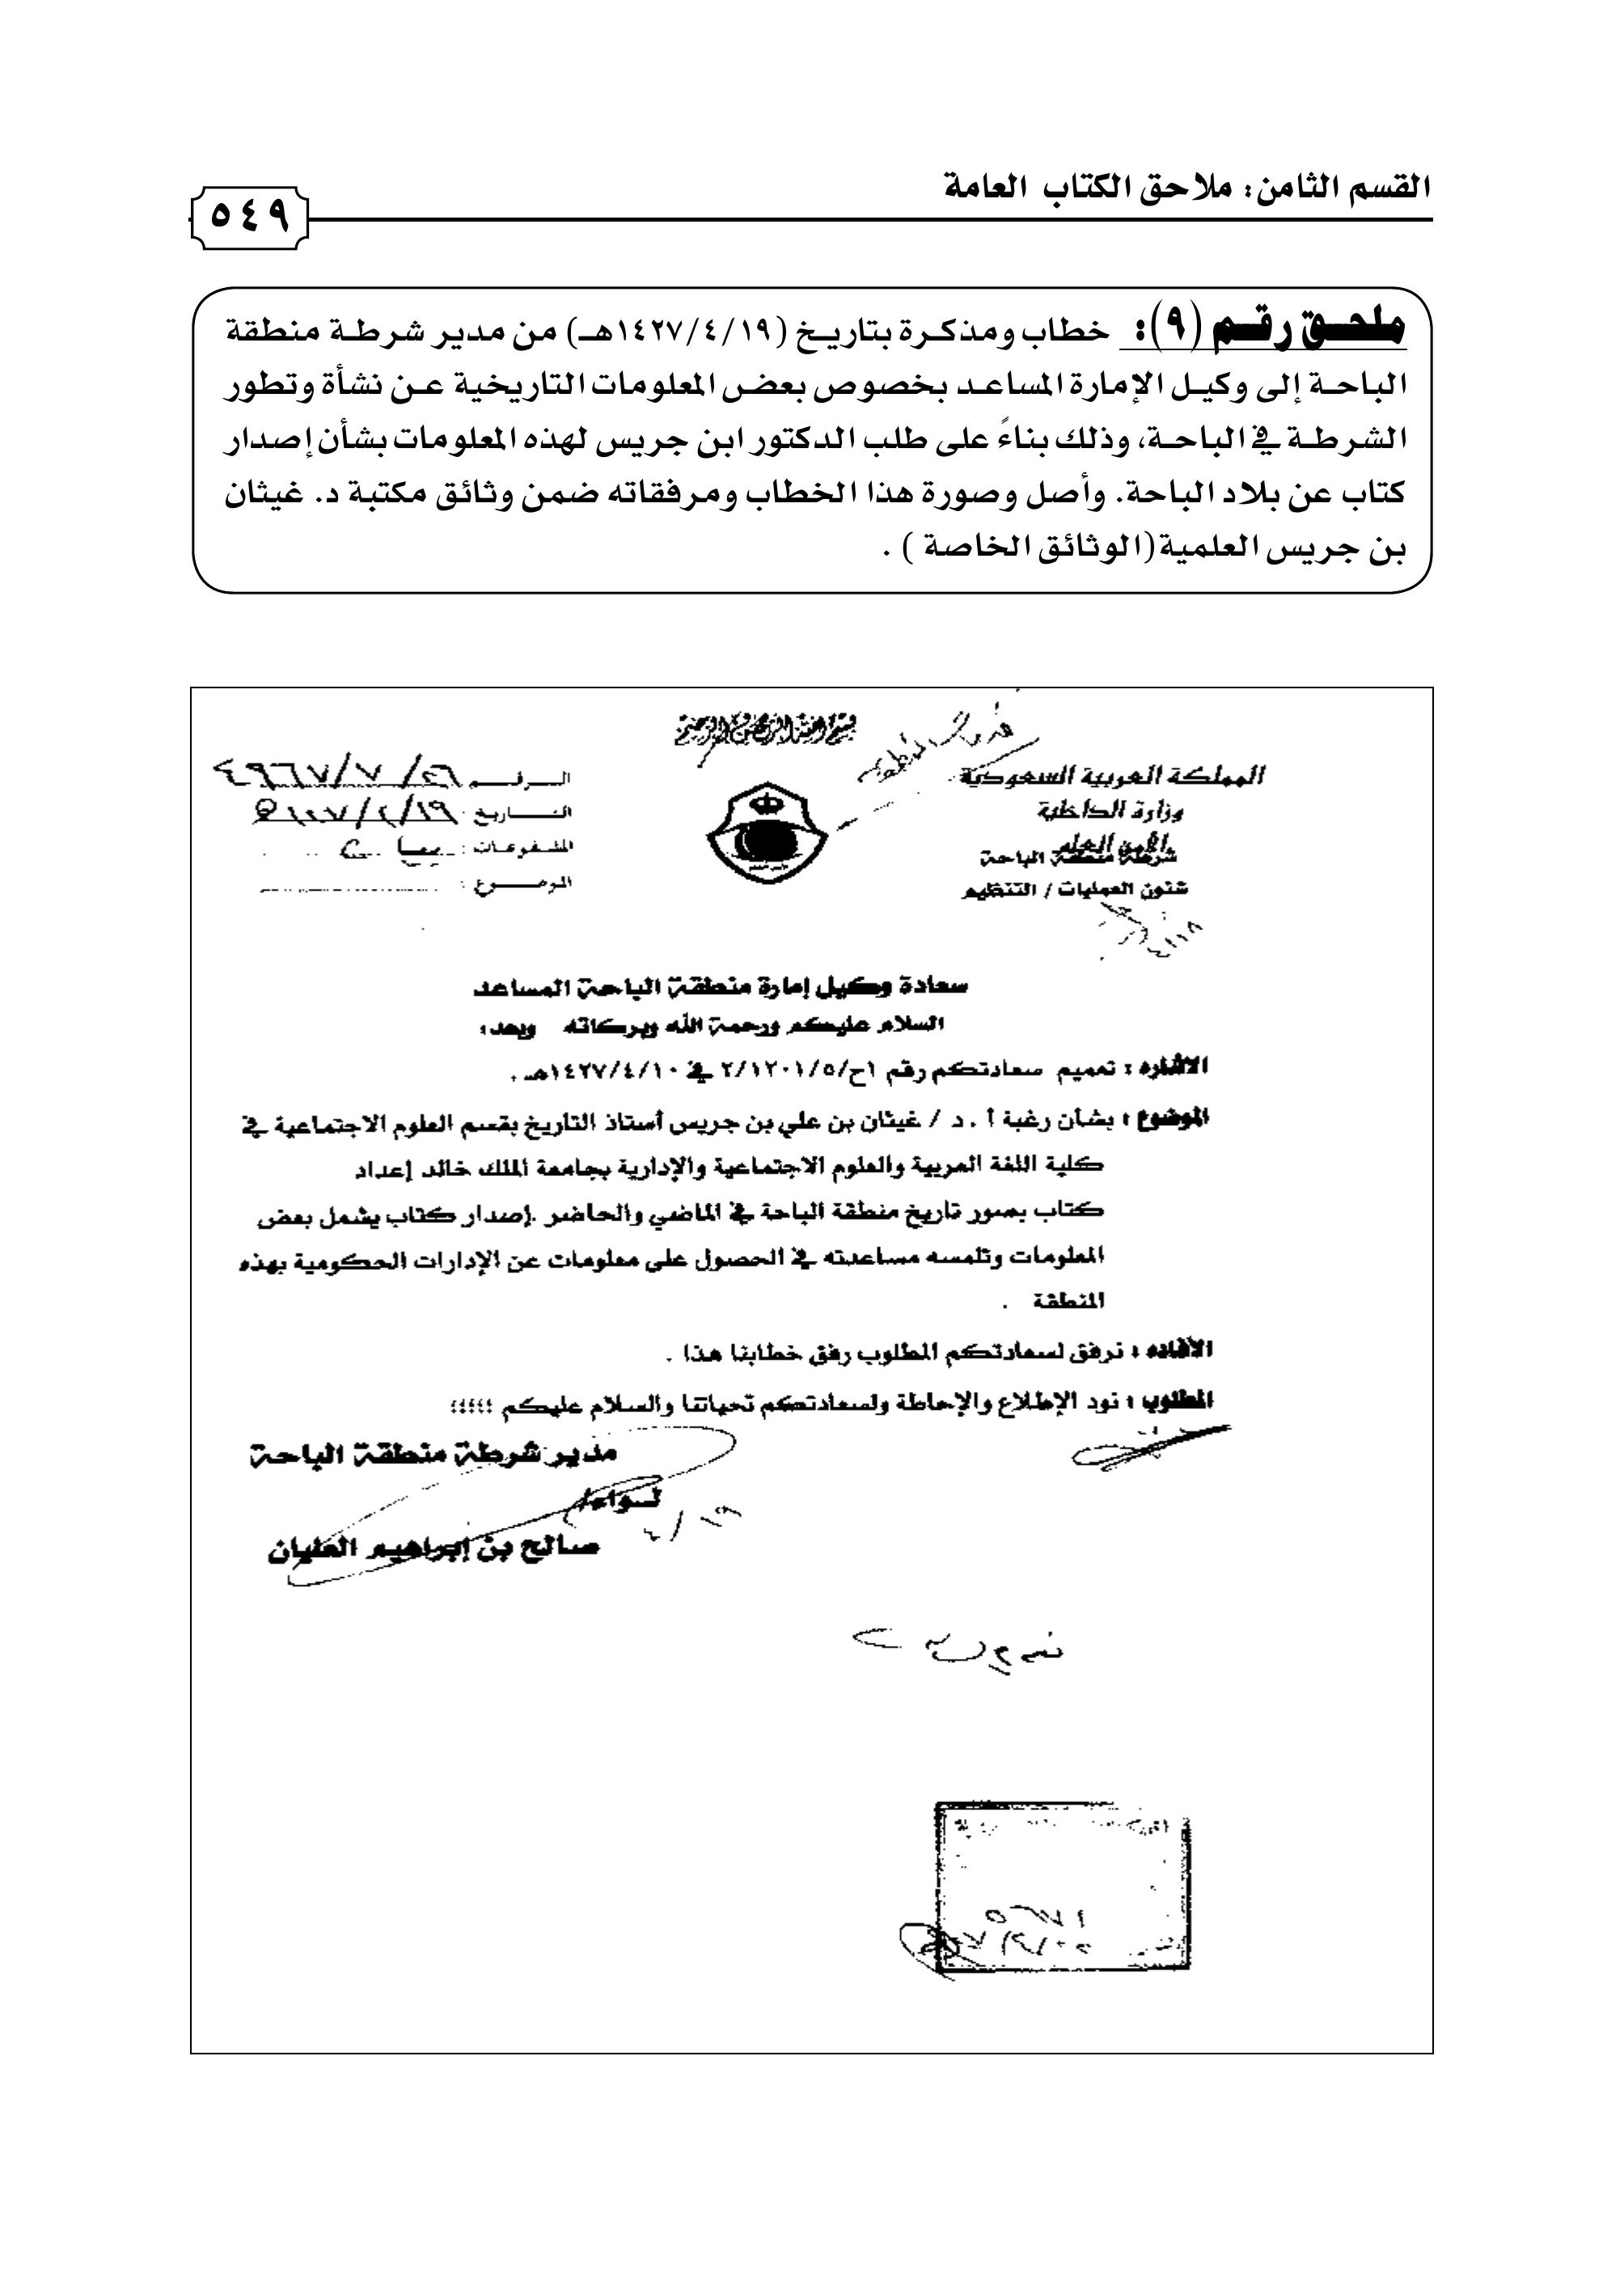 القسم الثامن: ملاحق الكتاب العامة
٥٤٩
ملحق رقم (٩): خطاب ومذكرة بتاريخ (١٤٢٧/٤/١٩هـ) من مدير شرطة منطقة
الباحة إلى وكيل الإمارة المساعد بخصوص بعض المعلومات التاريخية عن نشأة وتطور
الشرطة في الباحة، وذلك بناءً على طلب الدكتور ابن جريس لهذه المعلومات بشأن إصدار
كتاب عن بلاد الباحة. وأصل وصورة هذا الخطاب ومرفقاته ضمن وثائق مكتبة د. غيثان
بن جريس العلمية (الوثائق الخاصة ) .
بسم الله الرحمن الرحيم
المملكة العربية السعودية
وزارة الداخلية
الأمن العام
شرطة منطقة الباحة
شئون العمليات / التنظيم
الرقم
التاريخ :
الموضوع :
سعادة وكيل إمارة منطقة الباحة المساعد
السلام عليكم ورحمة الله وبركاته وبعد :
الاشاره : تعميم سعادتكم رقم ١ح/٢/١٢٠١/٥ في ١٤٢٧/٤/١٠هـ .
الموضوع : بشأن رغبة أ . د / غيثان بن علي بن جريس أستاذ التاريخ بقسم العلوم الاجتماعية في
كلية اللغة العربية والعلوم الاجتماعية والإدارية بجامعة الملك خالد إعداد
كتاب بصور تاريخ منطقة الباحة في الماضي والحاضر .إصدار كتاب يشمل بعض
المعلومات وتلمسه مساعدته في الحصول على معلومات عن الإدارات الحكومية بهذه
المنطقة .
الافاده : نرفق لسعادتكم المطلوب رفق خطابنا هذا .
المطلوب : نود الإطلاع والإحاطة ولسعادتكم تحياتنا والسلام عليكم ؛؛؛؛؛
مدير شرطة منطقة الباحة
لسواء/
صالح بن إبراهيم العليان